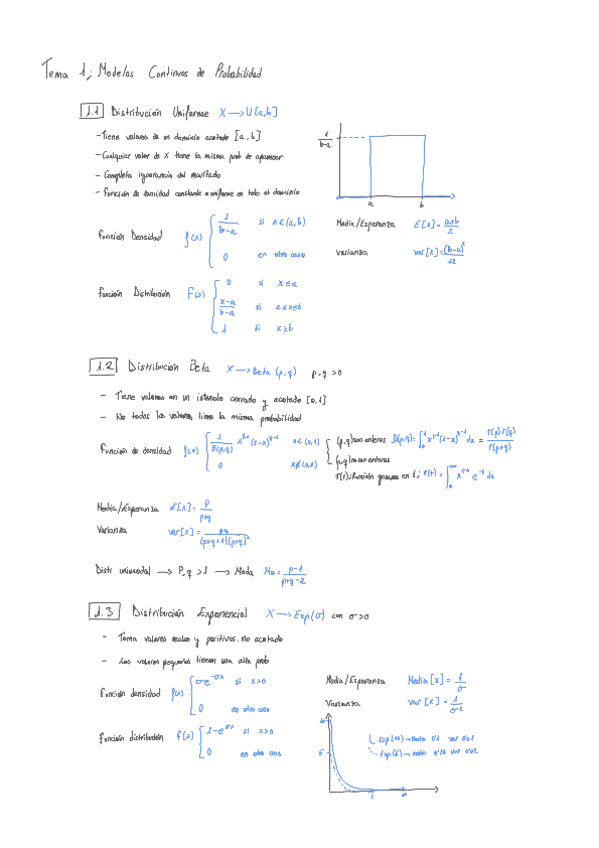 Tema 1: Modelos Continuos de Probabilidad
1.1 Distribución Uniforme X → U[a,b]
- Tiene valores de un dominio acotado [a,b]
- Cualquier valor de X tiene la misma prob de aparecer
- Completa ignorancia del resultado
- Función de densidad constante o uniforme en todo el dominio
1/b-a
a b
Función Densidad f(x) { 1/b-a si x∈(a,b)
0 en otro caso
Media/Esperanza E[x] = a+b/2
Varianza var[x] = (b-a)²/12
Función Distribución F(x) { 0 si x≤a
x-a/b-a si a≤x≤b
1 si x≥b
1.2 Distribución Beta X → Beta (p,q) p,q >0
- Tiene valores en un intervalo cerrado y acotado [0,1]
- No todos los valores tiene la misma probabilidad
Función de densidad f(x) { 1/B(p,q) x^p-1 (1-x)^q-1 x∈(0,1)
0 x∉(0,1)
(p,q) son enteros B(p,q) = ∫₀¹ x^p-1 (1-x)^q-1 dx = Γ(p)Γ(q)/Γ(p+q)
(p,q) no son enteros
Media/Esperanza E[x] = p/p+q
Varianza var[x] = pq/(p+q+1)(p+q)²
Distr unimodal → P,q >1 → Moda Mo = p-1/p+q-2
1.3 Distribución Exponencial X → Exp(σ) con σ>0
- Toma valores reales y positivos. No acotado
- Los valores pequeños tienen una alta prob
Función densidad f(x) { σe^-σx si x>0
0 en otro caso
Media/Esperanza Media[x] = 1/σ
Varianza var[x] = 1/σ²
Función distribución F(x) { 1-e^-σx si x>0
0 en otro caso